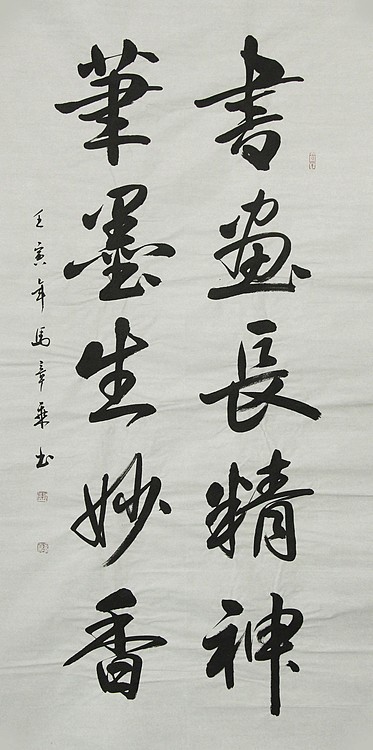 書畫長精神
筆墨生妙香
壬寅年馬章乘書